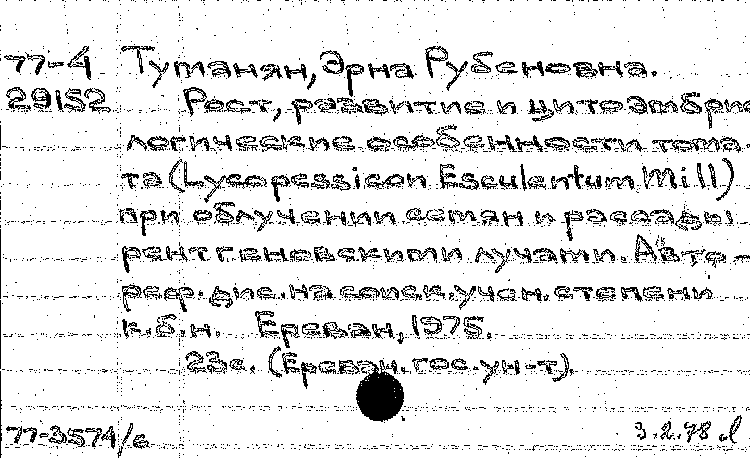 77-4 Тутанян, Эрна Рубеновна.
29152 Рост, развитие и цитоэмбрио
логические особенности тома-
та (Lycopessicon Esculentum Mill)
при облучении семян и рассады
рентгеновскими лучами. Авто-
реф. дис. на соиск. учен. степени
к.б.н. Ереван, 1975.
23с. (Ереван. гос. ун-т).
77-3574/б 3.2.78